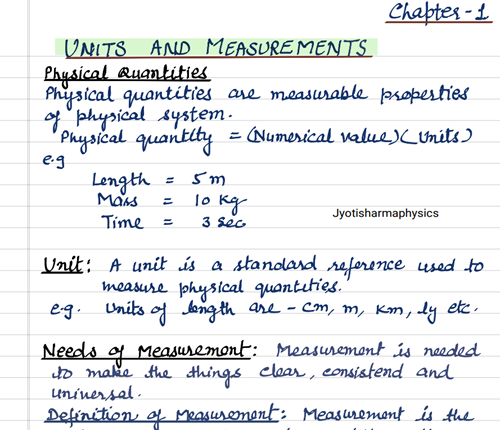 Chapter-1
UNITS AND MEASUREMENTS
Physical Quantities
Physical quantities are measurable properties
of physical system.
Physical quantity = (Numerical value)(Units)
e.g
Length = 5 m
Mass = 10 Kg
Time = 3 Sec
Jyotisharmaphysics
Unit: A unit is a standard reference used to
measure physical quantities.
e.g. Units of length are - cm, m, Km, ly etc.
Needs of Measurement: Measurement is needed
to make the things clear, consistend and
universal.
Definition of Measurement: Measurement is the